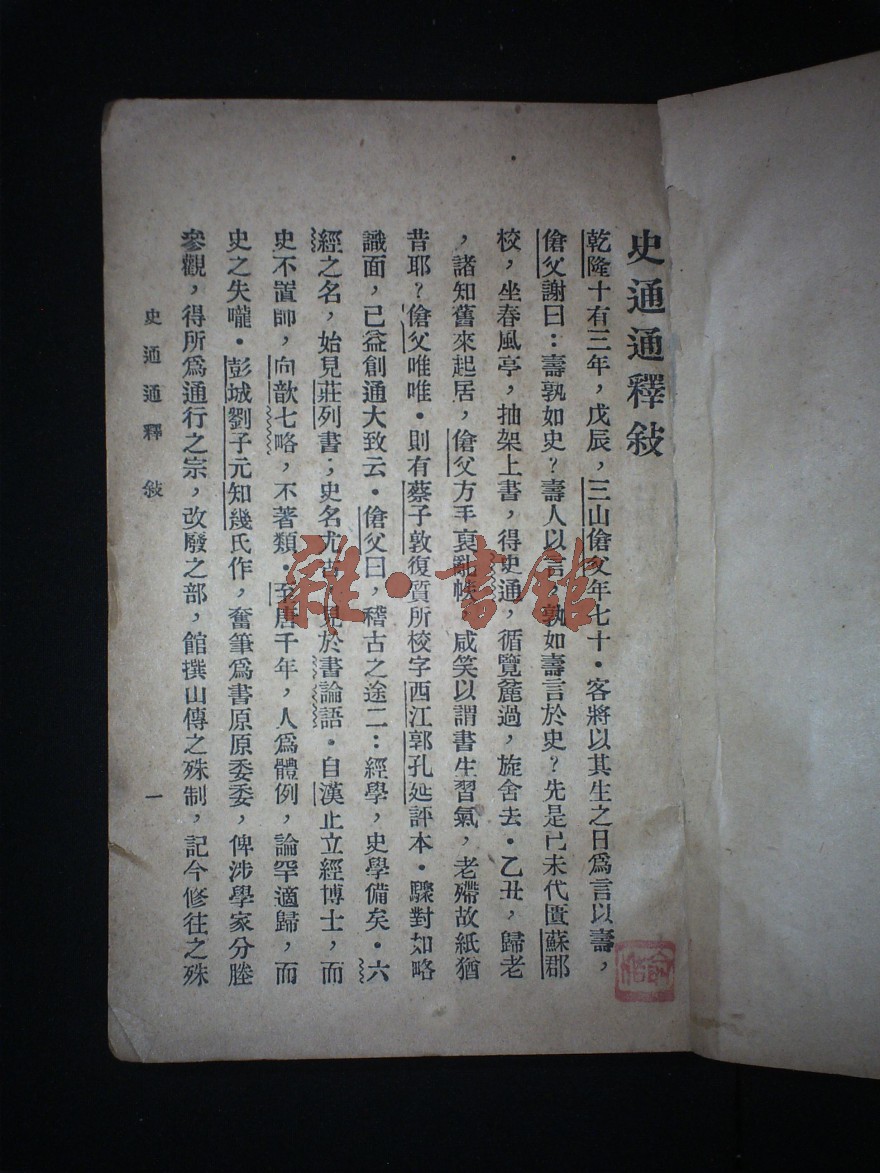 史通通釋敍
乾隆十有三年，戊辰，三山傖父年七十．客將以其生之日爲言以壽，
傖父謝曰：壽孰如史？壽人以言，孰如壽言於史？先是己未代匱蘇郡
校，坐春風亭，抽架上書，得史通，循覽麄過，旋舍去．乙丑，歸老
，諸知舊來起居，傖父方手裒亂帙，咸笑以謂書生習氣，老殢故紙猶
昔耶？傖父唯唯．則有蔡子敦復質所校字西江郭孔延評本．驟對如略
識面，已益創通大致云．傖父曰，稽古之途二：經學，史學備矣．六
經之名，始見莊列書；史名尤古，見於書論語．自漢止立經博士，而
史不置師，向歆七略，不著類．至唐千年，人爲體例，論罕適歸，而
史之失嚨．彭城劉子元知幾氏作，奮筆爲書原原委委，俾涉學家分塍
參觀，得所爲通行之宗，改廢之部，館撰山傳之殊制，記今修往之殊
史通通釋 敍
一
雜·書館